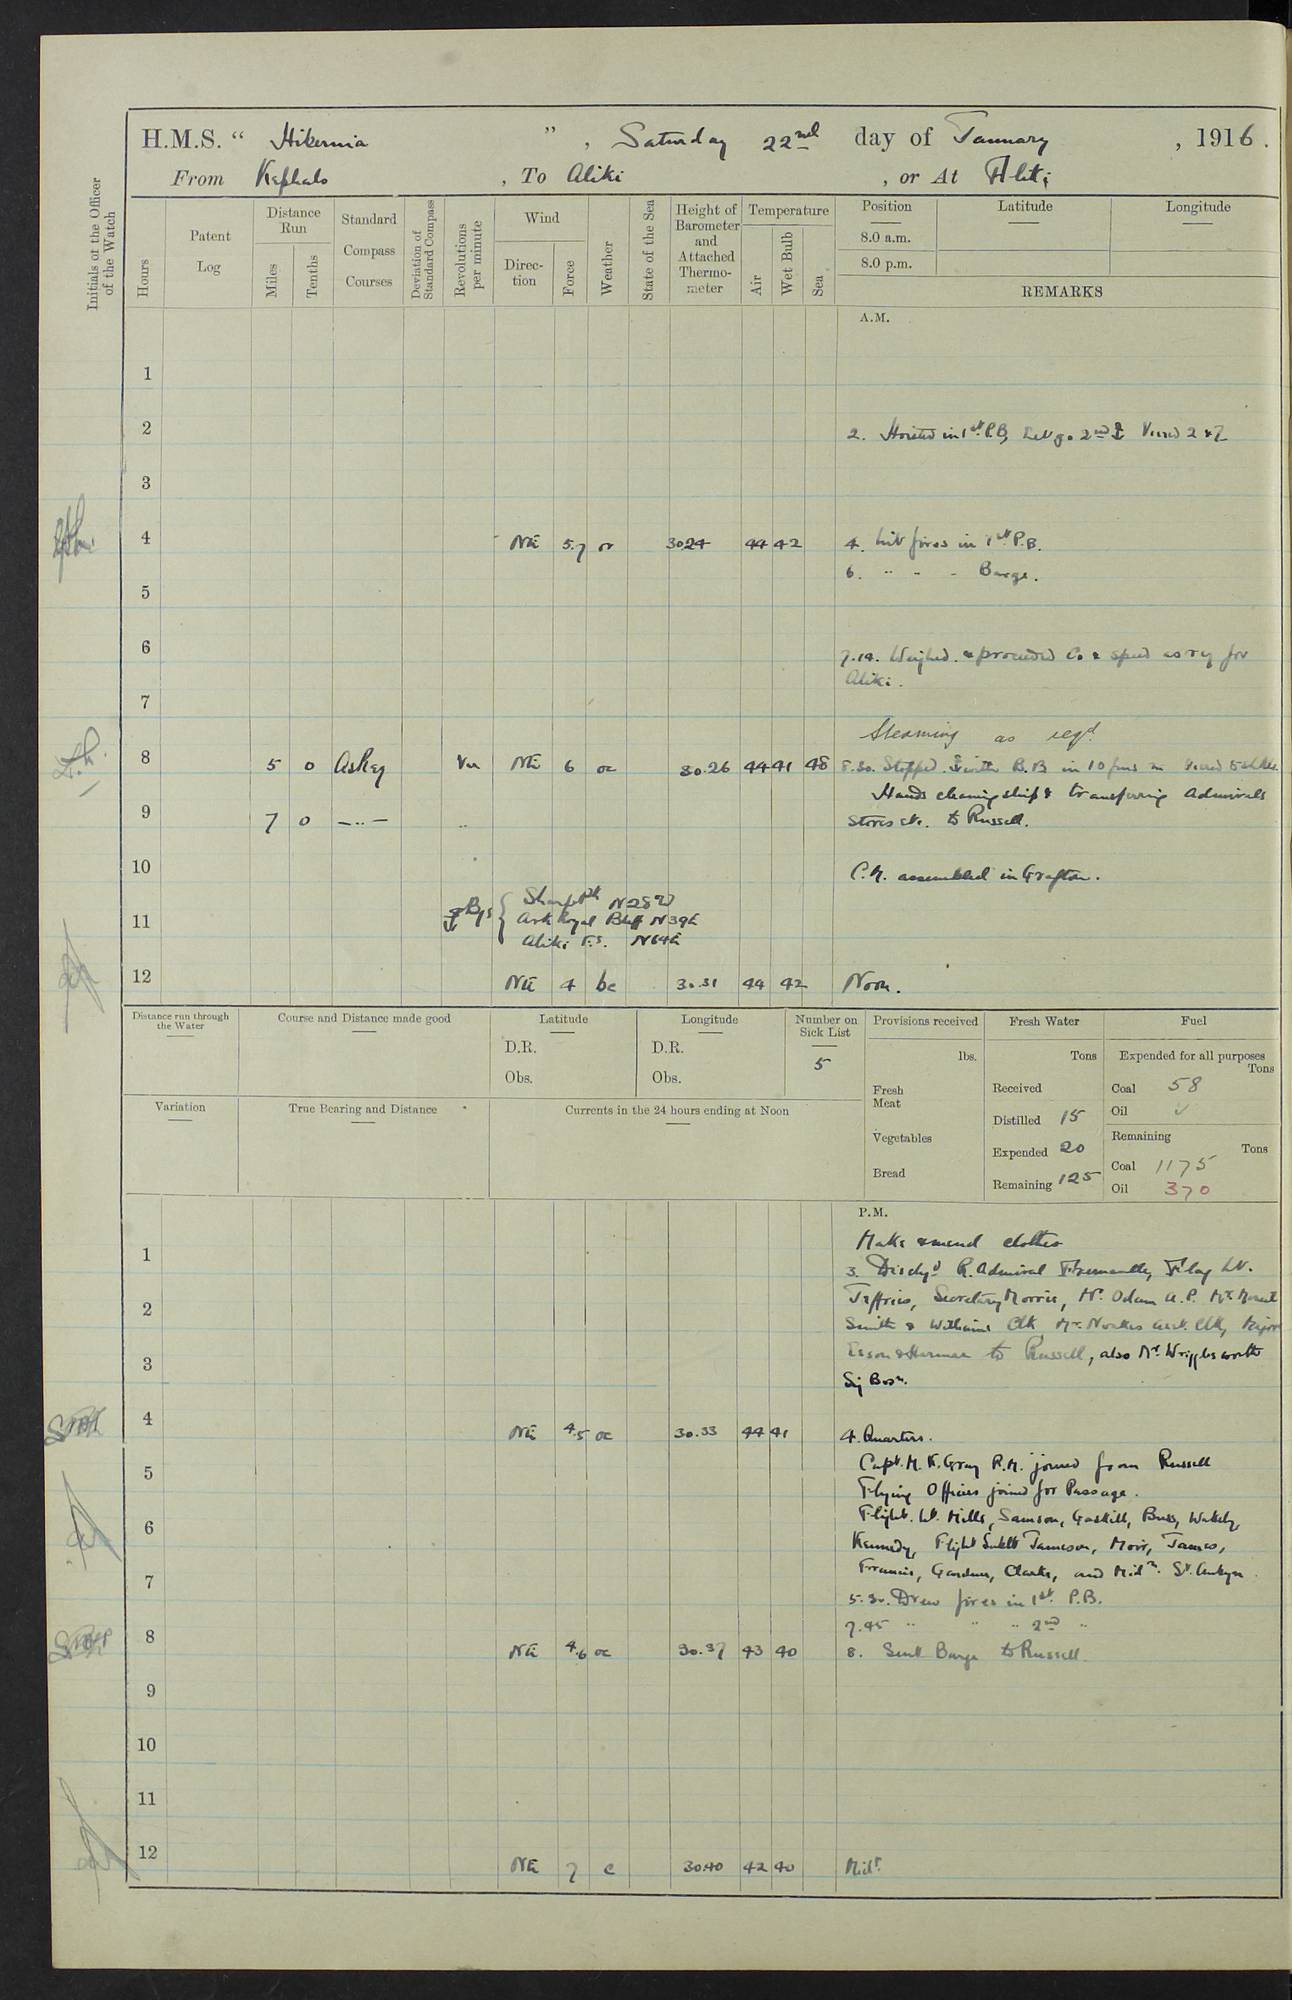 H.M.S. " Hibernia ", Saturday 22nd day of January, 1916.
From Kephalo, To Aliki, or At Aliki
Initials of the Officer of the Watch
Hours
Patent Log
Distance Run
Miles
Tenths
Standard Compass Courses
Deviation of Standard Compass
Revolutions per minute
Wind
Direction
Force
Weather
State of the Sea
Height of Barometer and Attached Thermometer
Temperature
Air
Wet Bulb
Sea
Position
Latitude
Longitude
8.0 a.m.
8.0 p.m.
REMARKS
A.M.
1
2 2. Hoisted in 1st P.B, Let go 2nd ⚓ Veered 2 & 7
3
4 NE 5.7 or 30.24 44 42 4. Lit fires in 1st P.B.
6. " - - Barge.
5
6 7.14. Weighed & proceeded Co & speed as req for
Aliki.
7
Steaming as reqd
8 5 0 As Req Var NE 6 oc 30.26 44 41 48 8.30. Stopped. ⚓ with B.B in 10 fms
Hands cleaning ship & transferring Admirals
9 7 0 — .. — .. Stores etc. to Russell.
10 C.M. assembled in Grafton.
⚓ Bgs { Sharp Pk N28W
11 Ark Royal Bluff N39E
Aliki F.S. N64E
12 NE 4 bc 30.31 44 42 Noon.
Distance run through the Water
Course and Distance made good
Latitude
D.R.
Obs.
Longitude
D.R.
Obs.
Number on Sick List
5
Provisions received
lbs.
Fresh Meat
Vegetables
Bread
Fresh Water
Tons
Received
Distilled 15
Expended 20
Remaining 125
Fuel
Expended for all purposes
Tons
Coal 58
Oil
Remaining
Tons
Coal 1175
Oil 370
Variation
True Bearing and Distance
Currents in the 24 hours ending at Noon
P.M.
Make & mend clothes
1 3. Dischgd R. Admiral Fremantle, Flag Lt.
2 Jeffries, Secretary Morris, Mr. Odam A.P. Mr
Smith & Clk Mr. Noakes Asst. Clk, Major
3 & to Russell, also Mr. Wrigglesworth
Sig Bosn.
4 NE 4.5 oc 30.33 44 41 4. Quarters.
Capt. M. K. Gray R.M. joined from Russell
5 Flying Officers joined for Passage.
Flight. Lt. Mills, Samson, Gaskill, Buss, Wakely,
6 Kennedy, Flight Subltt Jameson, Moir, James,
Francis, Gardner, Clarke, and Midn. St. Aubyn
7 5.30. Drew fires in 1st P.B.
7.45 " " " 2nd "
8 NE 4.6 oc 30.37 43 40 8. Sent Barge to Russell
9
10
11
12 NE 7 c 30.40 42 40 Midt.